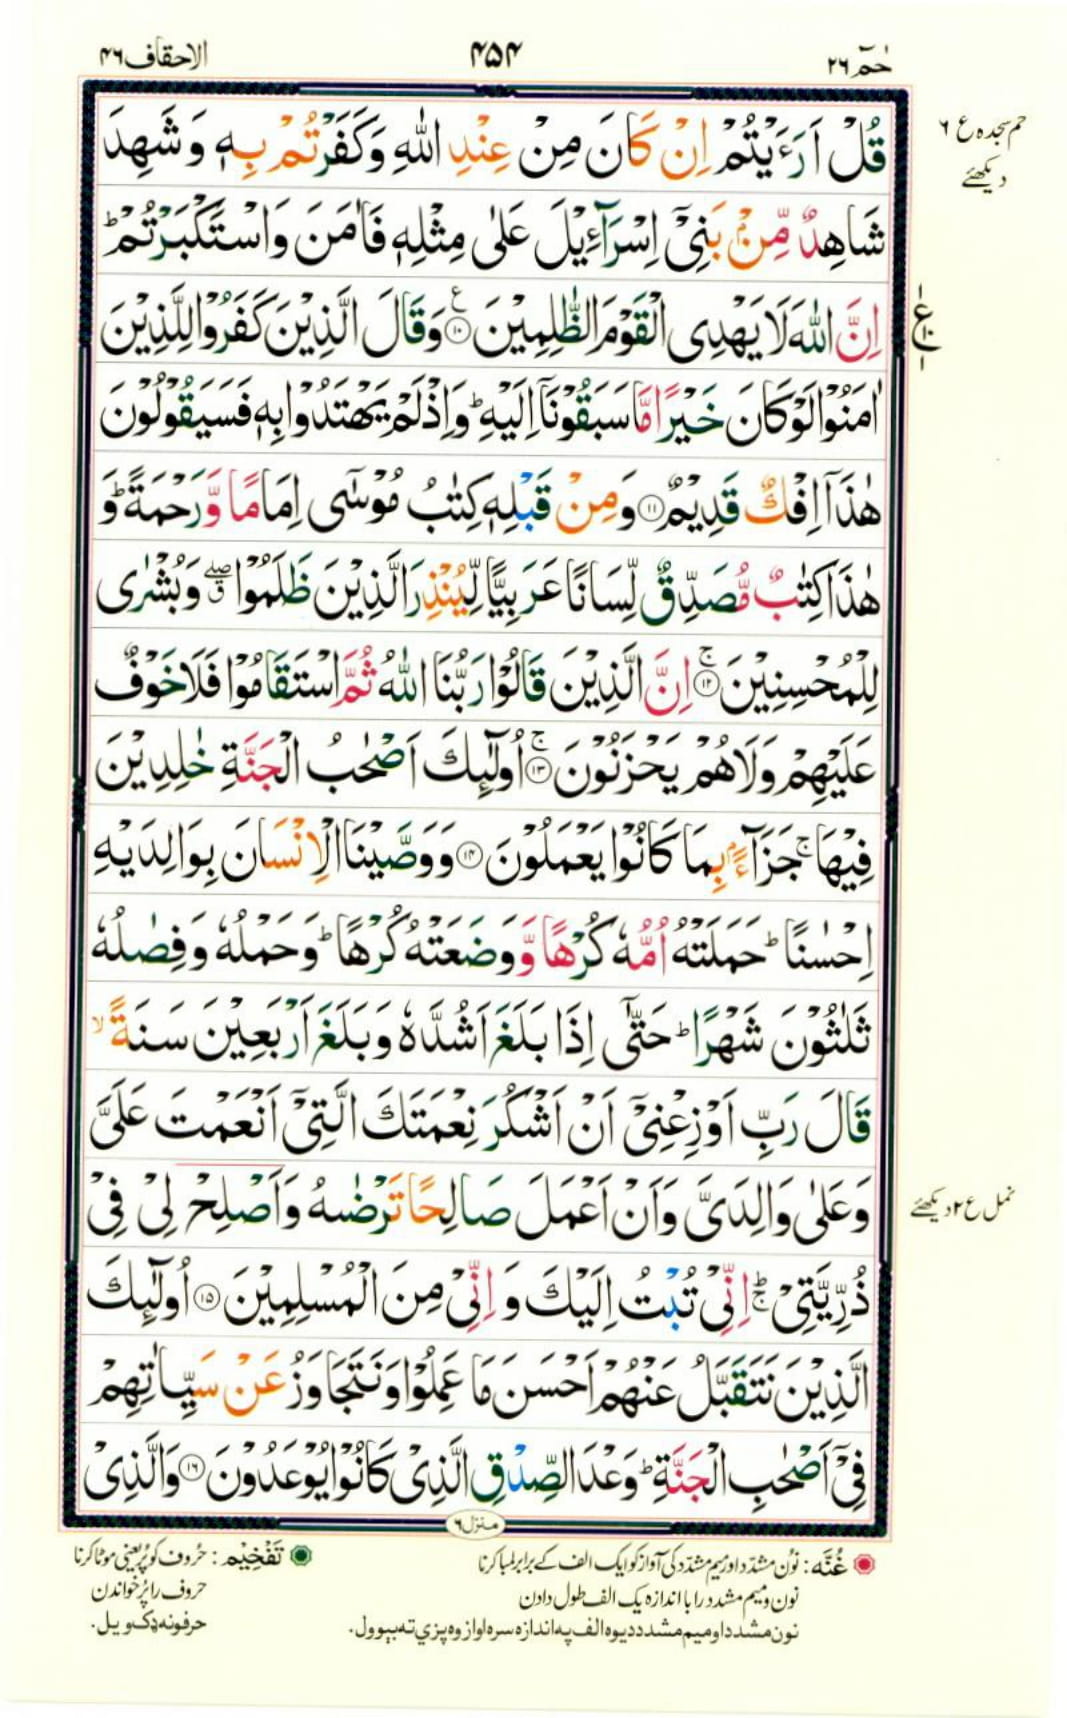 حٰمٓ ٢٦
٤٥٤
الاحقاف ٤٦
حم سجدہ ع ٦
دیکھئے
قُلْ اَرَءَيْتُمْ اِنْ كَانَ مِنْ عِنْدِ اللّٰهِ وَكَفَرْتُمْ بِهٖ وَشَهِدَ
شَاهِدٌ مِّنْۢ بَنِيْٓ اِسْرَآءِيْلَ عَلٰى مِثْلِهٖ فَاٰمَنَ وَاسْتَكْبَرْتُمْ ؕ
اِنَّ اللّٰهَ لَا يَهْدِى الْقَوْمَ الظّٰلِمِيْنَ ۧ ١٠ وَقَالَ الَّذِيْنَ كَفَرُوْا لِلَّذِيْنَ
اٰمَنُوْا لَوْ كَانَ خَيْرًا مَّا سَبَقُوْنَآ اِلَيْهِ ؕ وَاِذْ لَمْ يَهْتَدُوْا بِهٖ فَسَيَقُوْلُوْنَ
هٰذَآ اِفْكٌ قَدِيْمٌ ١١ وَمِنْ قَبْلِهٖ كِتٰبُ مُوْسٰٓى اِمَامًا وَّرَحْمَةً ؕ وَ
هٰذَا كِتٰبٌ مُّصَدِّقٌ لِّسَانًا عَرَبِيًّا لِّيُنْذِرَ الَّذِيْنَ ظَلَمُوْا ۖۗ وَبُشْرٰى
لِلْمُحْسِنِيْنَ ۚ ١٢ اِنَّ الَّذِيْنَ قَالُوْا رَبُّنَا اللّٰهُ ثُمَّ اسْتَقَامُوْا فَلَا خَوْفٌ
عَلَيْهِمْ وَلَا هُمْ يَحْزَنُوْنَ ۚ ١٣ اُولٰٓئِكَ اَصْحٰبُ الْجَنَّةِ خٰلِدِيْنَ
فِيْهَا ۚ جَزَآءًۢ بِمَا كَانُوْا يَعْمَلُوْنَ ١٤ وَوَصَّيْنَا الْاِنْسَانَ بِوَالِدَيْهِ
اِحْسٰنًا ؕ حَمَلَتْهُ اُمُّهٗ كُرْهًا وَّوَضَعَتْهُ كُرْهًا ؕ وَحَمْلُهٗ وَفِصٰلُهٗ
ثَلٰثُوْنَ شَهْرًا ؕ حَتّٰٓى اِذَا بَلَغَ اَشُدَّهٗ وَبَلَغَ اَرْبَعِيْنَ سَنَةً ۙ
قَالَ رَبِّ اَوْزِعْنِيْٓ اَنْ اَشْكُرَ نِعْمَتَكَ الَّتِيْٓ اَنْعَمْتَ عَلَيَّ
وَعَلٰى وَالِدَيَّ وَاَنْ اَعْمَلَ صَالِحًا تَرْضٰىهُ وَاَصْلِحْ لِيْ فِيْ
نمل ع ٢ دیکھئے
ذُرِّيَّتِيْ ؕۚ اِنِّيْ تُبْتُ اِلَيْكَ وَاِنِّيْ مِنَ الْمُسْلِمِيْنَ ١٥ اُولٰٓئِكَ
الَّذِيْنَ نَتَقَبَّلُ عَنْهُمْ اَحْسَنَ مَا عَمِلُوْا وَنَتَجَاوَزُ عَنْ سَيِّاٰتِهِمْ
فِيْٓ اَصْحٰبِ الْجَنَّةِ ؕ وَعْدَ الصِّدْقِ الَّذِيْ كَانُوْا يُوْعَدُوْنَ ١٦ وَالَّذِيْ
منزل ٦
غُنَّه: نُون مشدّد اور میم مشدّد کی آواز کو ایک الف کے برابر لمبا کرنا
نون و میم مشدد را با اندازه یک الف طول دادن
نون مشدد او میم مشدد د یوه الف په اندازه سره اواز وه پزي ته بېوول.
تَفْخِيْم: حُروف کو پُر یعنی موٹا کرنا
حروف را پُر خواندن
حرفونه ډک ویل.